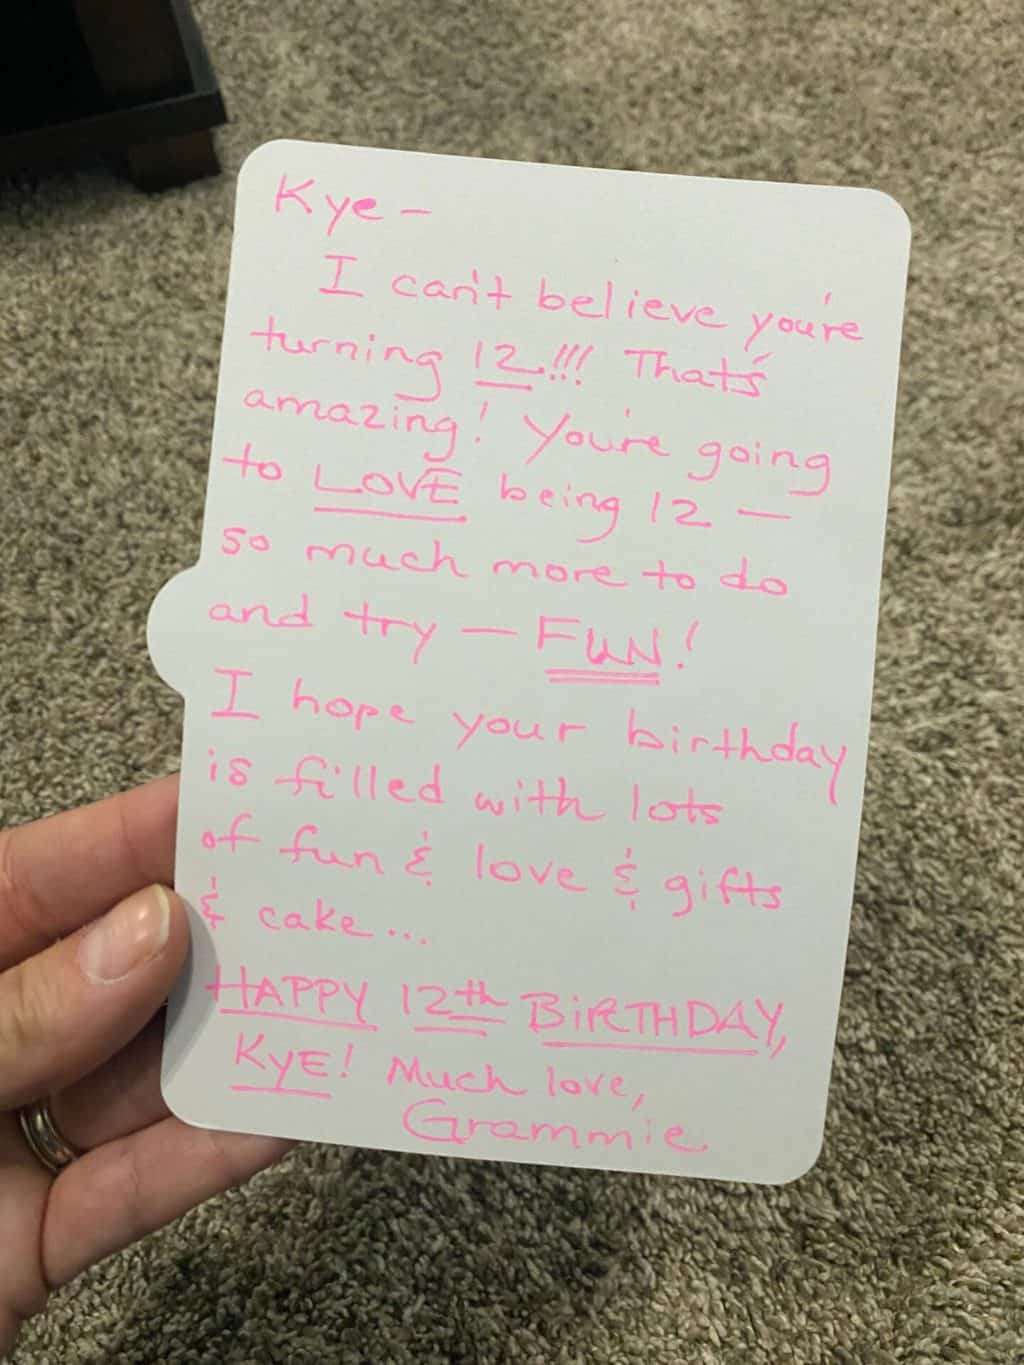 Kye -
I can't believe you're
turning 12!!! That's
amazing! You're going
to LOVE being 12 —
so much more to do
and try — FUN!
I hope your birthday
is filled with lots
of fun & love & gifts
& cake...
HAPPY 12th BiRTHDAY,
KYE! Much love,
Grammie